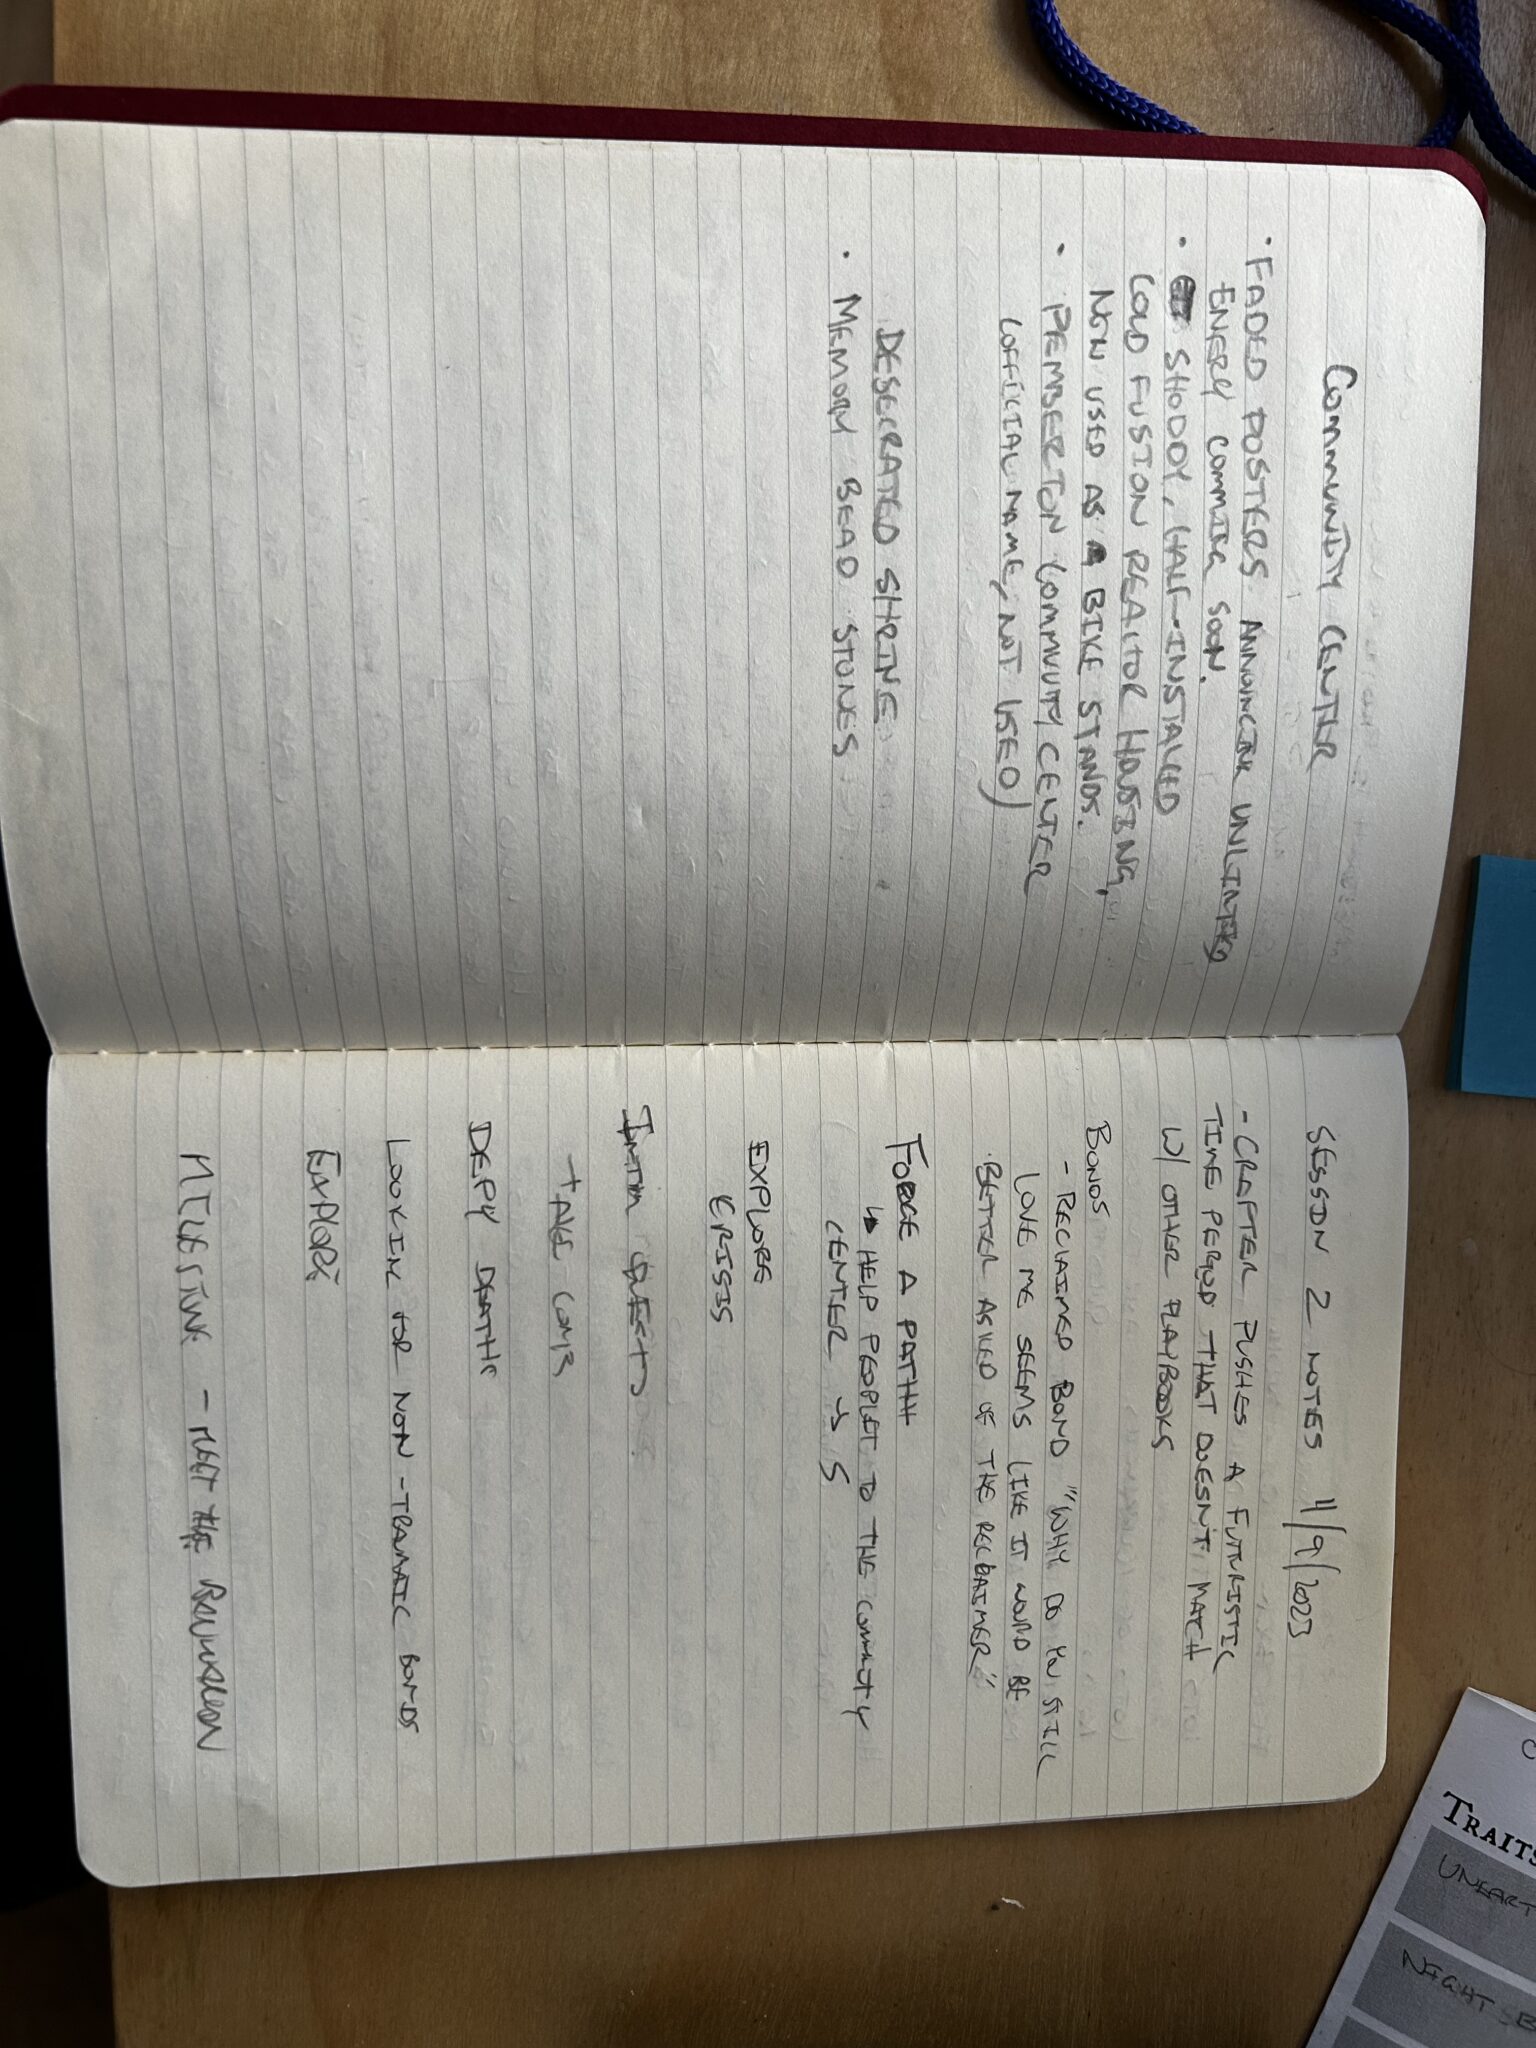 COMMUNITY CENTER
• FADED POSTERS ANNOINCINK UNLIMITED
ENERY COMMING SOON.
• SHODDY, HALF-INSTALLED
COLD FUSION REACTOR HOUSING,
NOW USED AS A BIKE STANDS.
• PEMBERTON COMMUNITY CENTER
(OFFICIAL NAME, NOT USED)
DESECRATED SHRINE
• MEMORY BEAD STONES
SESSION 2 NOTES 11/9/2023
- CRAFTER PUSHES A FUTURISTIC
TIME PERIOD THAT DOESN'T MATCH
W/ OTHER PLAYBOOKS
BONDS
- RECLAIMED BOND "WHY DO YOU STILL
LOVE ME SEEMS LIKE IT WOULD BE
BETTER ASKED OF THE RECLAIMER"
FORGE A PATHH
↳ HELP PEOPLET TO THE COMMUNITY
CENTER → 5
EXPLORE
CRISIS
QUESTS
DEFY DEATHS
LOOKIN FOR NON-TRAMATIC BONDS
EXPLORE
MILESTONE - MEET THE
TRAITS
UNEART
NIGHT